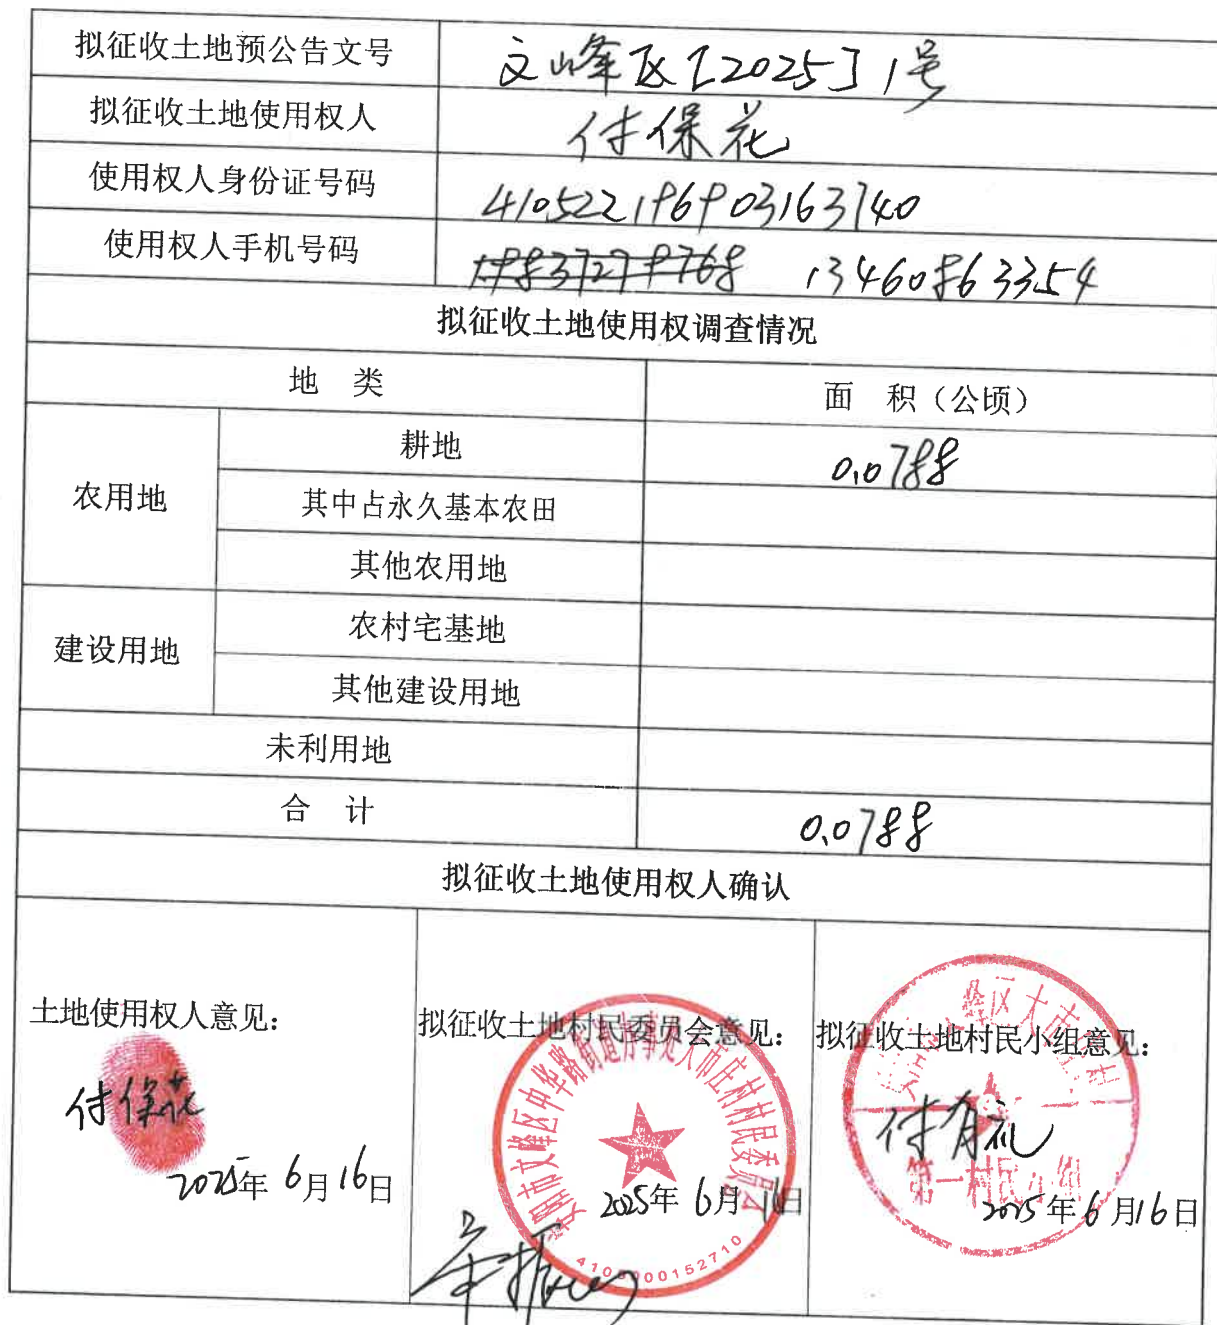 拟征收土地预公告文号 文峰区[2025]1号
拟征收土地使用权人 付保花
使用权人身份证号码 410522196903163740
使用权人手机号码 13460863354
拟征收土地使用权调查情况
地 类 面 积（公顷）
农用地 耕地 0.0788
其中占永久基本农田
其他农用地
建设用地 农村宅基地
其他建设用地
未利用地
合 计 0.0788
拟征收土地使用权人确认
土地使用权人意见：
付保花
2025年6月16日
拟征收土地村民委员会意见：
安阳市文峰区中华路街道办事处大市庄村村民委员会
2025年6月16日
4105000152710
拟征收土地村民小组意见：
付有礼
第一村民小组
2025年6月16日